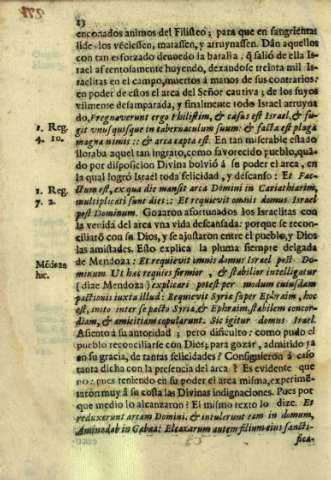 23
enconados animos del Filisteo; para que en sangrientas
lides los vēciessen, matassen, y arruynassen. Dàn aquellos
con tan esforzado denuedo la batalla, q̃ saliò de ella Is-
rael afrentosamente huyendo, dexandose treinta mil Is-
raelitas en el campo, muertos à manos de sus contrarios:
en poder de estos el arca del Señor cautiva; de los suyos
vilmente desamparada, y finalmente todo Israel arruyna
do. Pugnaverunt ergo Philistijm, & cæsus est Israel, & fu-
1. Reg. 4. 10.
git vnusquisque in tabernaculum suum: & facta est plaga
magna nimis :: & arca capta est. En tan miserable estado
lloraba aquel tan ingrato, como favorecido pueblo, quã-
do por disposicion Divina bolviò à su poder el arca, en
la qual logrò Israel toda felicidad, y descanso: Et Fac-
1. Reg. 7. 2.
tum est, ex qua die mansit arca Domini in Cariathiarim,
multiplicati sunt dies:: Et requievit omnis domus Israel
post Dominum. Gozaron afortunados los Israelitas con
la venida del arca vna vida descansada: porque se recon-
ciliarõ con su Dios, y se ajustaron entre el pueblo, y Dios
las amistades. Esto explica la pluma siempre delgada
Mēdoza hic.
de Mendoza: Et requievit omnis domus Israel post Do-
minum. Ut hac requies firmior, & stabilior intelligatur
(dize Mendoza) explicari potest per modum cuiusdam
pactionis iuxta illud: Requievit Syria super Ephraim, hoc
est, inito inter se pacto Syria, & Ephraim, stabilem concor-
diam, & amicitiam copularunt. Sic igitur domus Israel.
Assiento à su autoridad; pero dificulto: como pudo el
pueblo reconciliarse con Dios; para gozar, admitido ya
en su gracia, de tantas felicidades? Consiguieron à caso
tanta dicha con la presencia del arca? Es evidente que
no: pues teniendo en su poder el arca misma, experimē-
taron muy à su costa las Divinas indignaciones. Pues por
que medio lo alcanzaron? El mismo texto lo dize. Et
reduxerunt arcam Domini, & intulerunt eam in domum,
Aminadab in Gabaa: Eleazarum autem filium eius sancti-
fica-